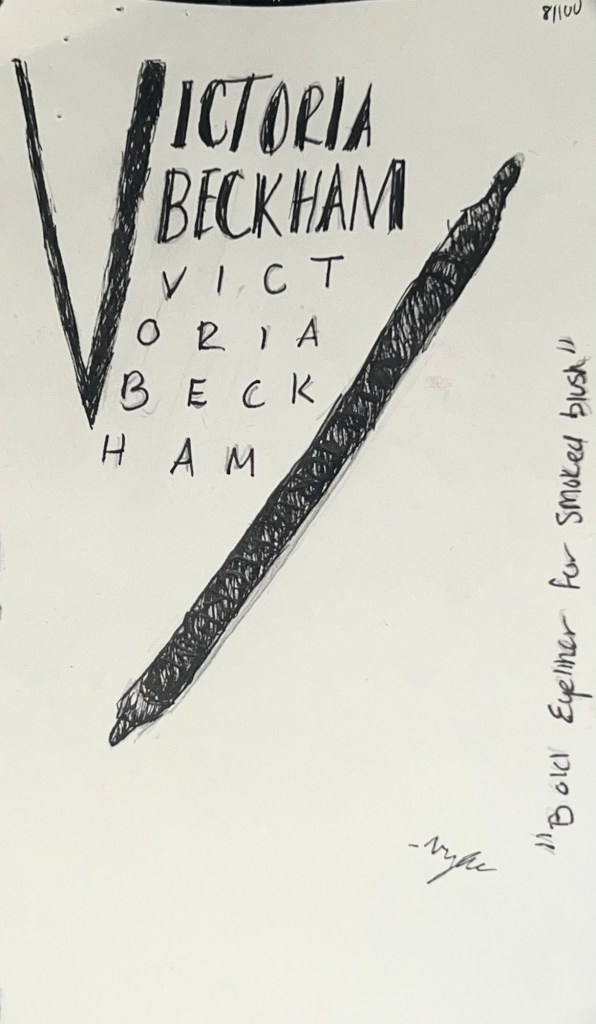 8/100
VICTORIA
BECKHAM
VICT
ORIA
BECK
HAM
"Bold Eyeliner for smoked blush"